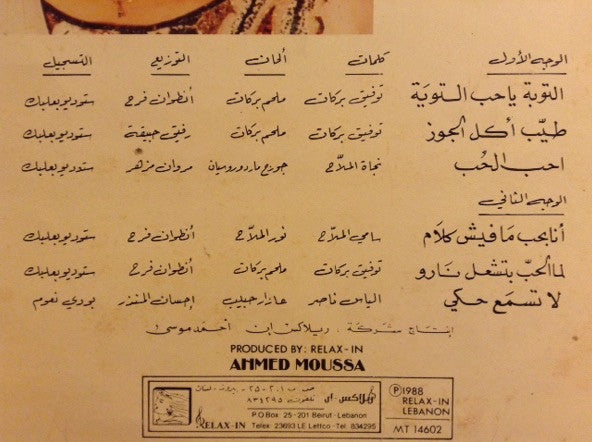 الوجه الأول كلمات ألحان التوزيع التسجيل
التوبة ياحب التوبة توفيق بركات ملحم بركات أنطوان فرح ستوديو بعلبك
طيّب أكل الجوز توفيق بركات ملحم بركات رفيق حبيقة ستوديو بعلبك
احب الحُب نجاة الملاّح جورج ماردوروسيان مروان مزهر ستوديو بعلبك
الوجه الثاني
أنابحب مافيش كلام سامي الملاّح نور الملاّح أنطوان فرح ستوديو بعلبك
لما الحبّ بتشعل نارو توفيق بركات ملحم بركات أنطوان فرح ستوديو بعلبك
لا تسمَع حكي الياس ناصر عازار حبيب إحسان المنذر بودي نعوم
إنتاج شركة: ريلاكس إن أحمد موسى
PRODUCED BY: RELAX-IN
AHMED MOUSSA
ريلاكس إن ص.ب ٢٠١-٢٥ بيروت-لبنان
تلفون ٨٣٤٢٩٥
P.O Box 25-201 Beirut-Lebanon
RELAX-IN Telex 23693 LE Leffco-Tel 834295
Ⓟ1988
RELAX-IN
LEBANON
MT 14602